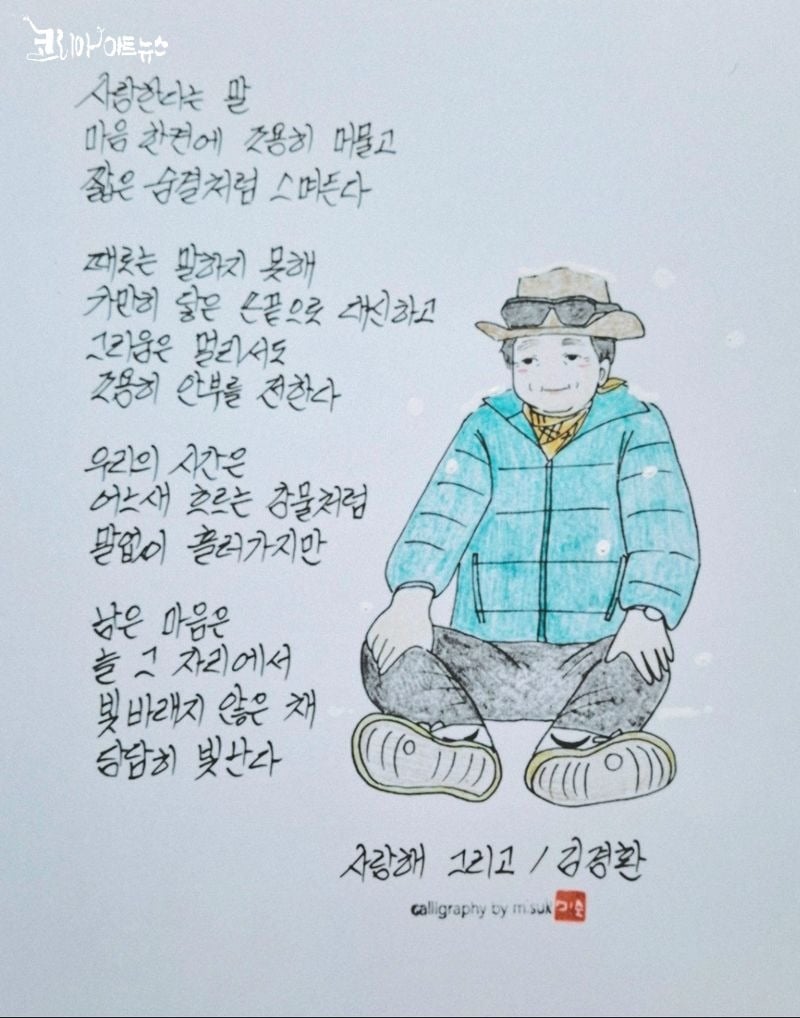 코리아아트뉴스
사랑한다는 말
마음 한켠에 조용히 머물고
짧은 숨결처럼 스며든다
때로는 말하지 못해
가만히 닿은 손끝으로 대신하고
그리움은 멀리서도
조용히 안부를 전한다
우리의 시간은
어느새 흐르는 강물처럼
말없이 흘러가지만
남은 마음은
늘 그 자리에서
빛바래지 않은 채
담담히 빛난다
사랑해 그리고 / 김경환
calligraphy by misuk